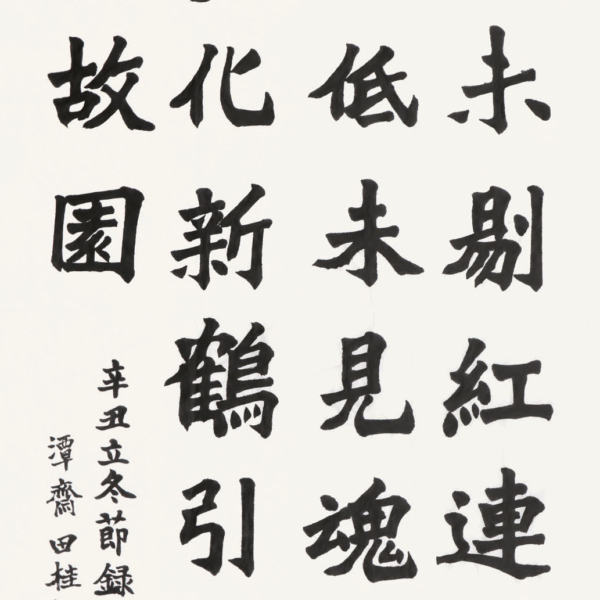 未剔紅連
低未見魂
化新鶴引
故園
辛丑立冬節録
潭齋田桂